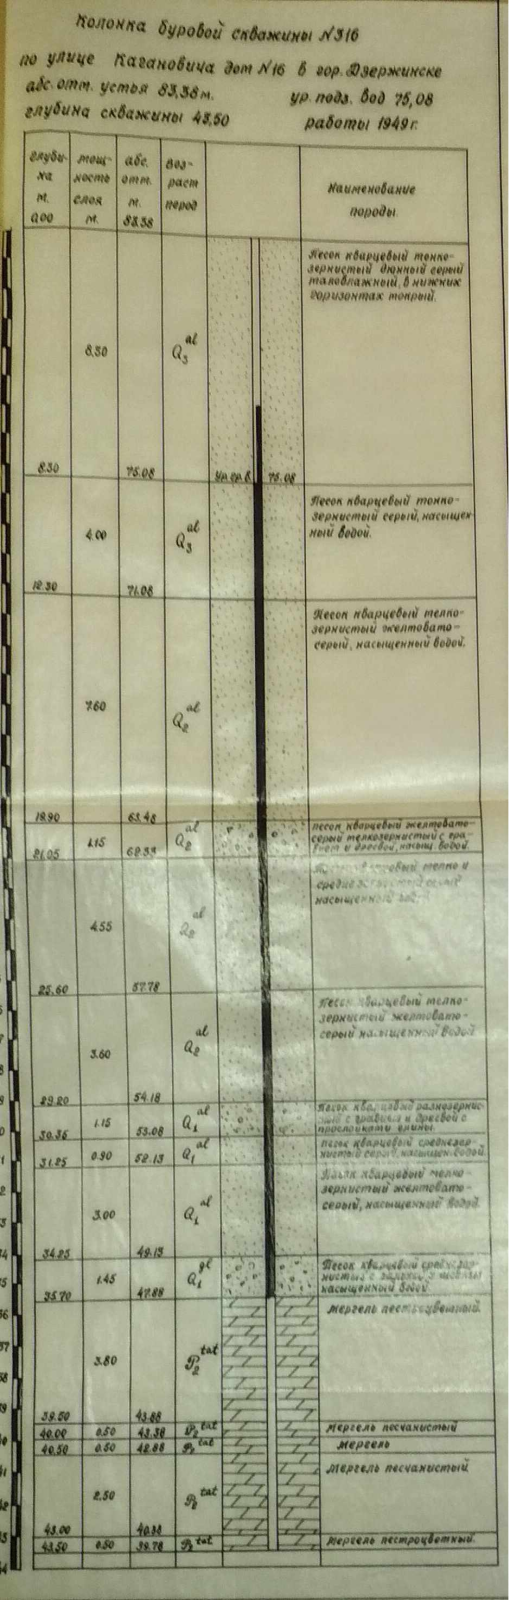 Колонка буровой скважины №316
по улице Кагановича дом №16 в гор. Дзержинске
абс. отм. устья 83,38 м. ур. подз. вод 75,08
глубина скважины 43,50 работы 1949 г.
глуби-
на
м.
0.00
мощ-
ность
слоя
м.
абс.
отм.
м.
83.38
Воз-
раст
пород
Наименование
породы
Песок кварцевый тонко-
зернистый дюнный серый
маловлажный, в нижних
горизонтах мокрый.
8.30 8.30 75.08 Q3 al
ур. гр. в. 75.08
Песок кварцевый тонко-
зернистый серый, насыщен-
ный водой.
12.30 4.00 71.08 Q3 al
Песок кварцевый мелко-
зернистый желтовато-
серый, насыщенный водой.
19.90 7.60 63.48 Q2 al
Песок кварцевый желтовато-
серый мелкозернистый с гра-
вием и дресвой, насыщ. водой.
21.05 1.15 62.33 Q2 al
мелко и
средне
насыщенный
25.60 4.55 57.78 Q2 al
Песок кварцевый мелко-
зернистый желтовато-
серый насыщенный водой
29.20 3.60 54.18 Q2 al
Песок кварцевый разнозернис-
тый с гравием и дресвой с
прослойками глины.
30.35 1.15 53.08 Q1 al
Песок кварцевый среднезер-
нистый серый, насыщен. водой.
31.25 0.90 52.13 Q1 al
Песок кварцевый мелко-
зернистый желтовато-
серый, насыщенный водой.
34.25 3.00 49.13 Q1 al
Песок кварцевый среднезер-
нистый с галькой и
насыщенный водой
35.70 1.45 47.88 Q1 gl
Мергель пестроцветный.
39.50 3.80 43.88 P2 tat
Мергель песчанистый
40.00 0.50 43.38 P2 tat
Мергель
40.50 0.50 42.88 P2 tat
Мергель песчанистый
43.00 2.50 40.38 P2 tat
Мергель пестроцветный.
43.50 0.50 39.78 P2 tat